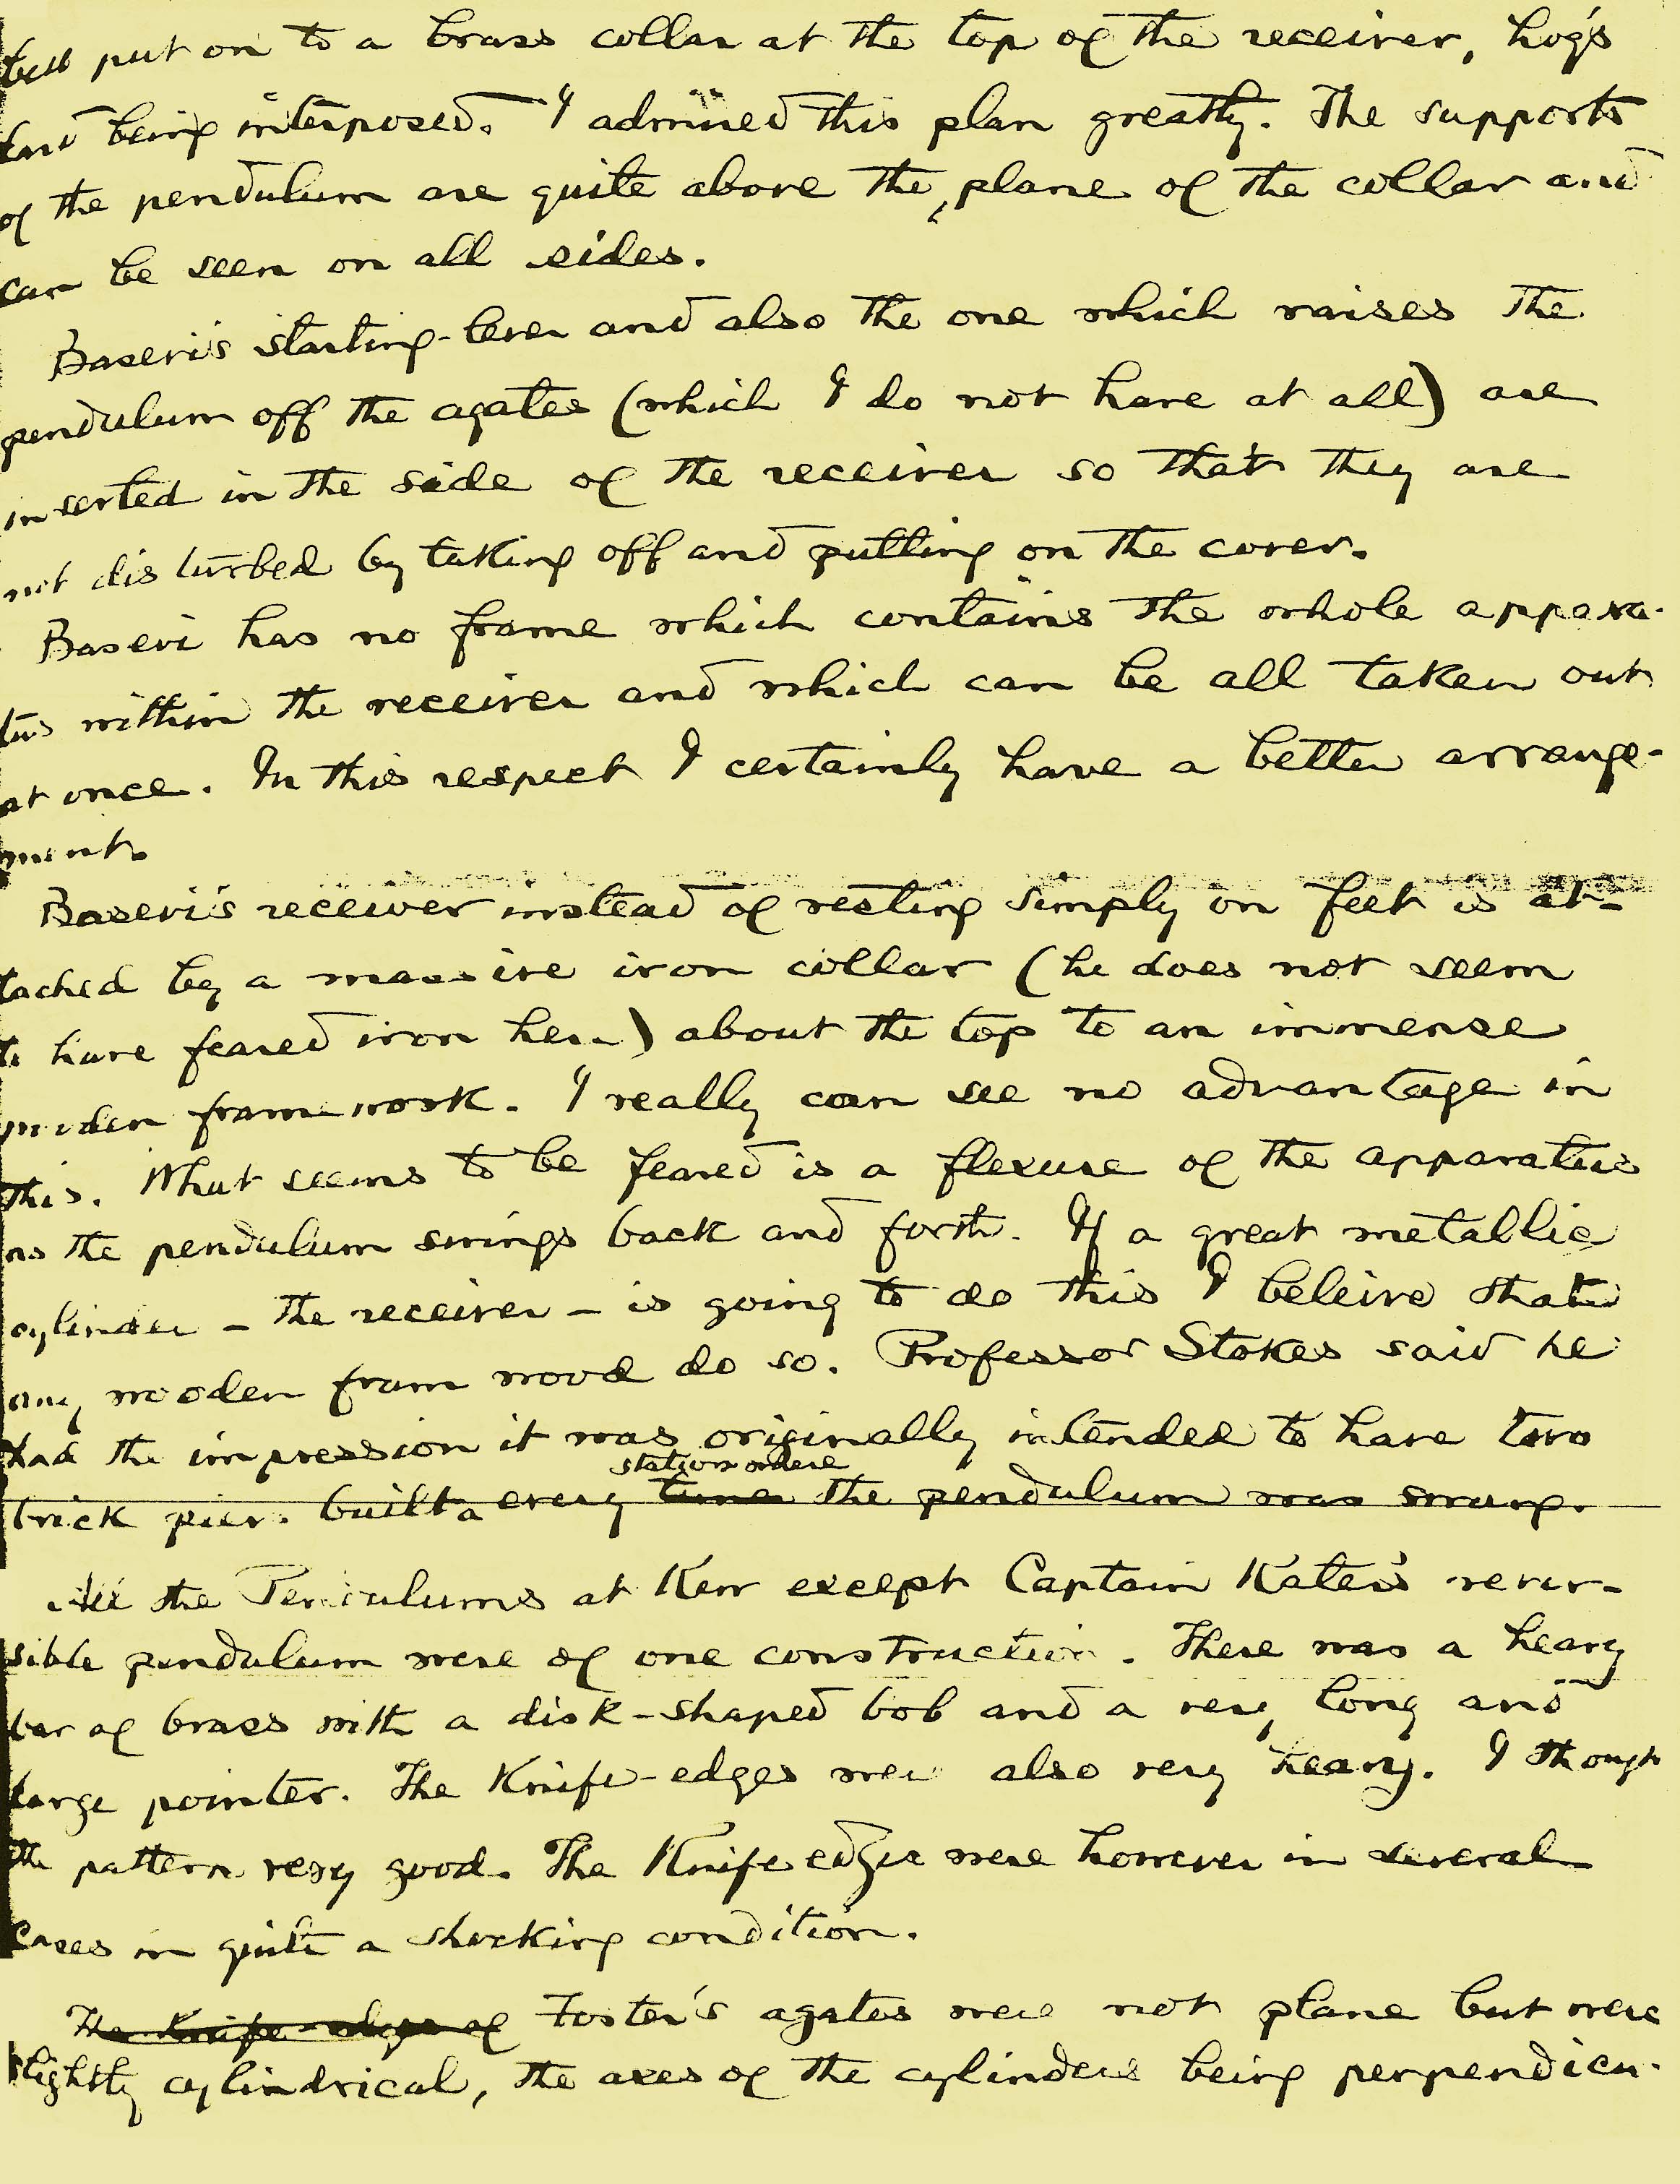 bell put on to a brass collar at the top of the receiver, hog's
lard being interposed. I admired this plan greatly. The supports
of the pendulum are quite above the plane of the collar and
can be seen on all sides.
Basevi's starting-lever and also the one which raises the
pendulum off the agates (which I do not have at all) are
inserted in the side of the receiver so that they are
not disturbed by taking off and putting on the cover.
Basevi has no frame which contains the whole appara-
tus within the receiver and which can be all taken out
at once. In this respect I certainly have a better arrange-
ment.
Basevi's receiver instead of resting simply on feet is at-
tached by a massive iron collar (he does not seem
to have feared iron here) about the top to an immense
wooden framework. I really can see no advantage in
this. What seems to be feared is a flexure of the apparatus
as the pendulum swings back and forth. If a great metallic
cylinder – the receiver – is going to do this I beleive that
any wooden fram wood do so. Professor Stokes said he
had the impression it was originally intended to have two
station where
brick piers built a every time the pendulum was swung.
All the Pendulums at Kew except Captain Kater's rever-
sible pendulum were of one construction. There was a heavy
bar of brass with a disk-shaped bob and a very long and
large pointer. The Knife-edges were also very heavy. I though
the pattern very good. The Knife edges were however in several
cases in quite a shocking condition.
The Knife-edges of Foster's agates were not plane but were
slightly cylindrical, the axes of the cylinders being perpendicu-